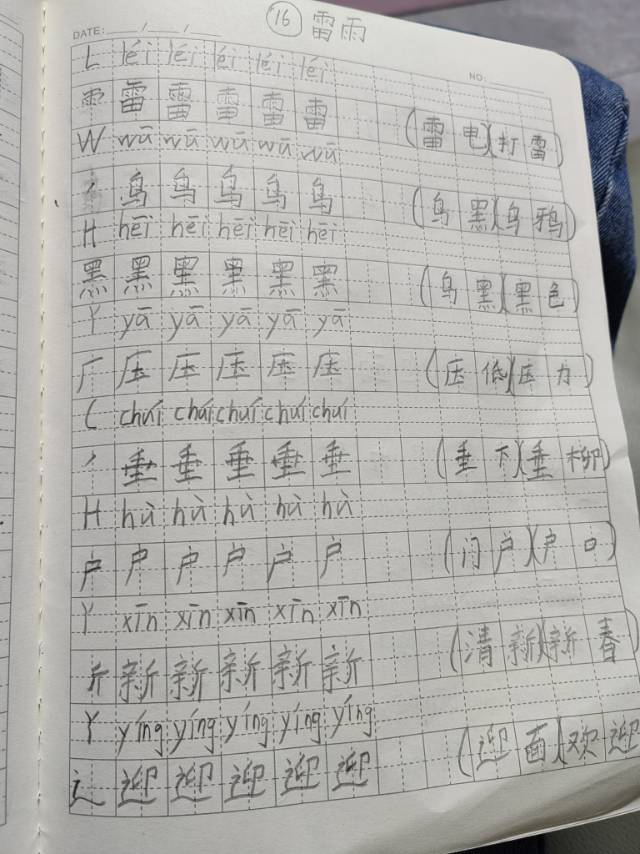 16 雷雨
DATE: / /
NO:
L léi léi léi léi léi
雷 雷 雷 雷 雷 (雷电)(打雷)
W wū wū wū wū wū
丿 乌 乌 乌 乌 乌 (乌黑)(乌鸦)
H hēi hēi hēi hēi hēi
黑 黑 黑 黑 黑 黑 (乌黑)(黑色)
Y yā yā yā yā yā
厂 压 压 压 压 压 (压低)(压力)
C chuí chuí chuí chuí chuí
丿 垂 垂 垂 垂 垂 (垂下)(垂柳)
H hù hù hù hù hù
户 户 户 户 户 户 (门户)(户口)
Y xīn xīn xīn xīn xīn
斤 新 新 新 新 新 (清新)(新春)
Y yíng yíng yíng yíng yíng
辶 迎 迎 迎 迎 迎 (迎面)(欢迎